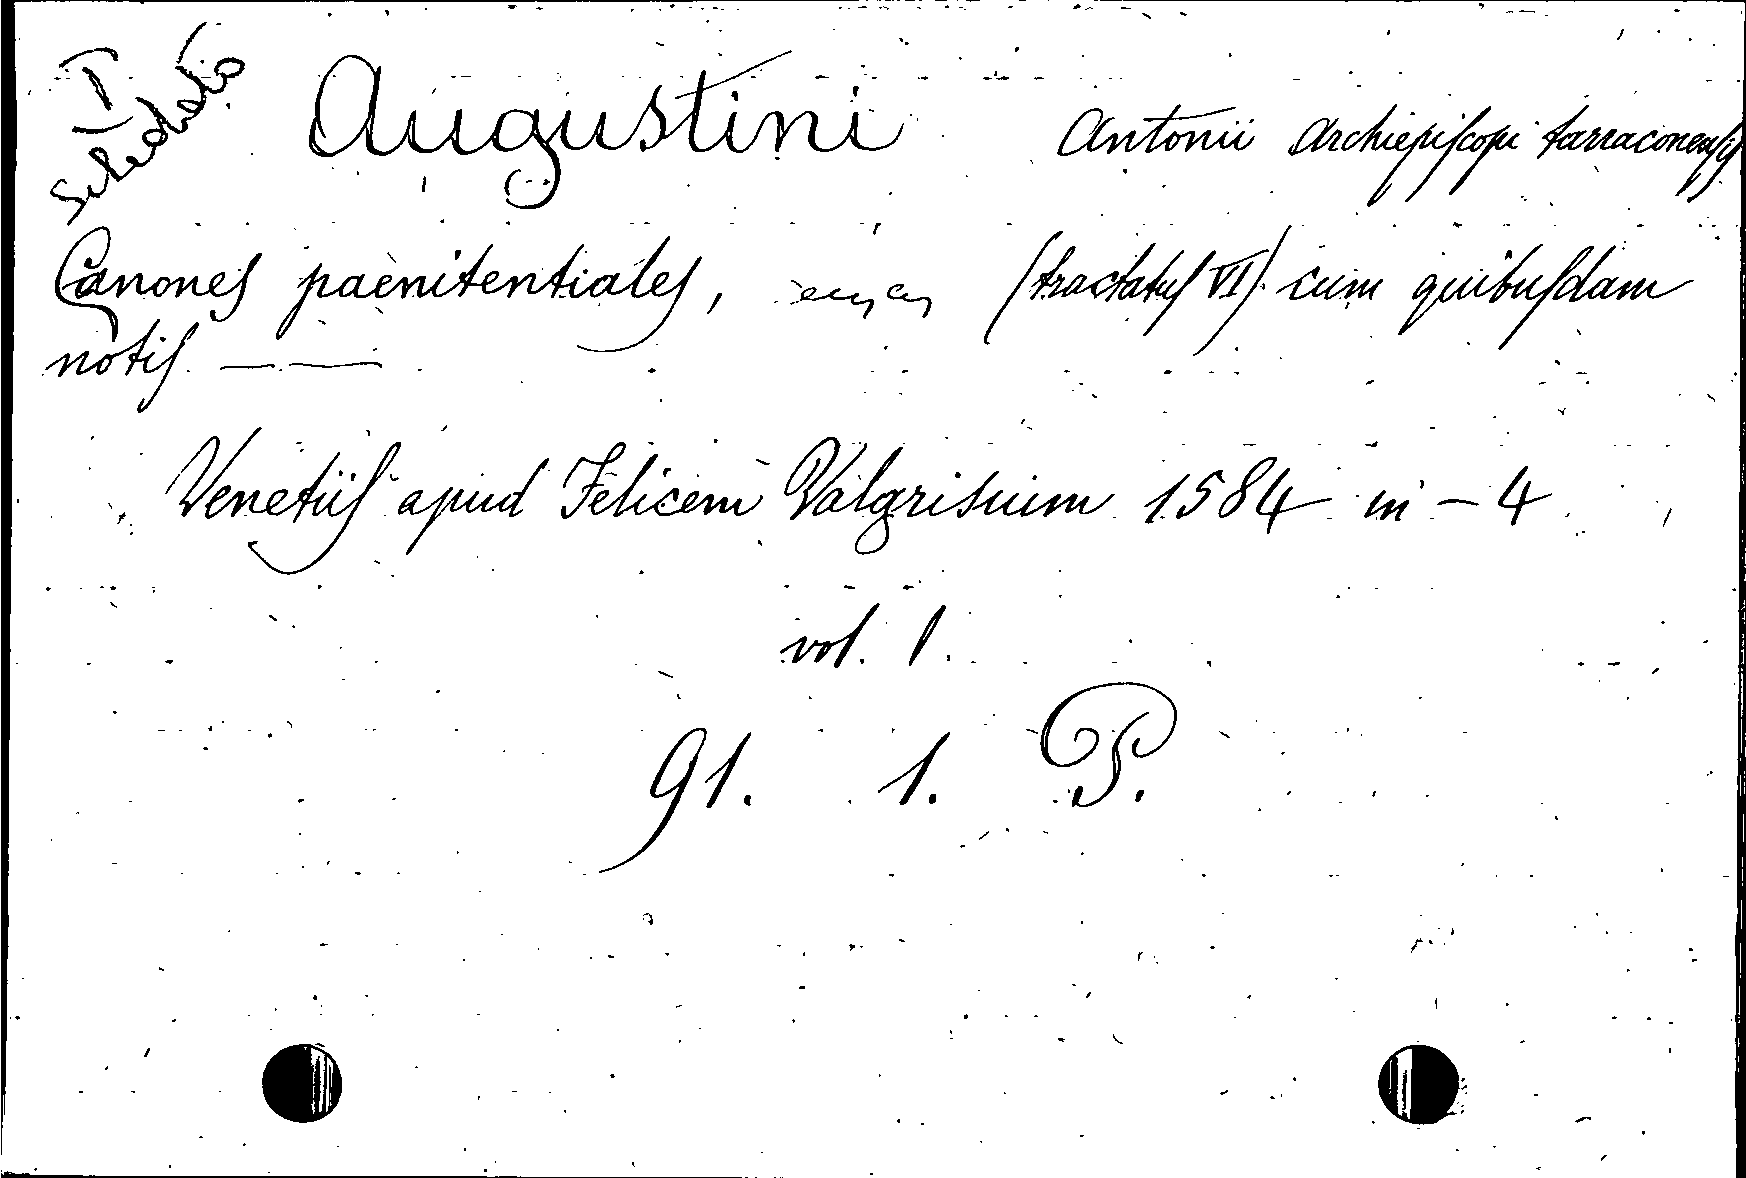 I
schedato
Augustini Antonii Archiepiscopi tarraconensis
Canones paenitentiales, (tractatus VI) cum quibusdam
notis. — —
Venetiis apud Felicem Valgrisium 1584 in - 4
vol. 1.
91. 1. P.